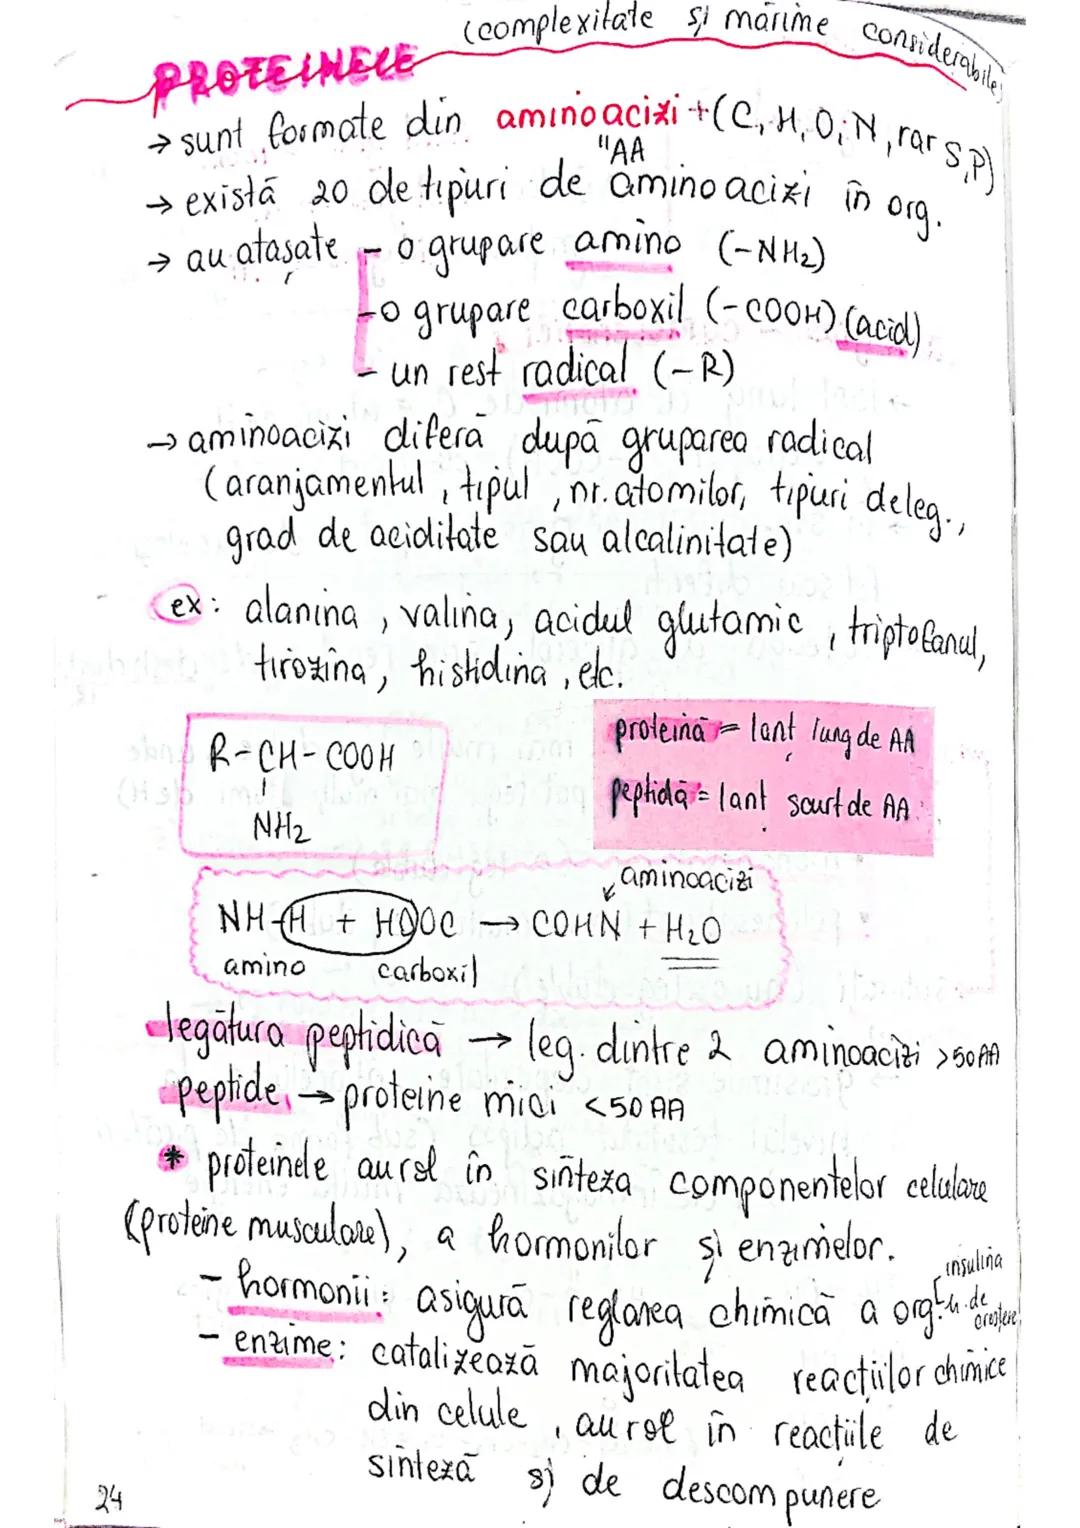 (complexitate și mărime considerabile)
PROTEINELE
→ sunt formate din aminoacizi + (C, H, O, N, rar S, P)
"AA
→ există 20 de tipuri de aminoacizi în org.
→ au atașate - o grupare amino (-NH2)
- o grupare carboxil (-COOH) (acid)
- un rest radical (-R)
→ aminoacizi diferă după gruparea radical
(aranjamentul, tipul, nr. atomilor, tipuri de leg.,
grad de aciditate sau alcalinitate)
ex: alanina, valina, acidul glutamic, triptofanul,
tirozina, histidina, etc.
R-CH-COOH
|
NH2
proteină = lanț lung de AA
peptidă = lanț scurt de AA
aminoacizi
NH-H + HOOC → COHN + H2O
amino carboxil
legătura peptidică → leg. dintre 2 aminoacizi >50AA
peptide → proteine mici <50 AA
* proteinele au rol în sinteza componentelor celulare
(proteine musculare), a hormonilor și enzimelor.
insulina
- hormonii: asigură reglarea chimică a org. h. de creștere
- enzime: catalizează majoritatea reacțiilor chimice
din celule, au rol în reacțiile de
sinteză și de descompunere
24